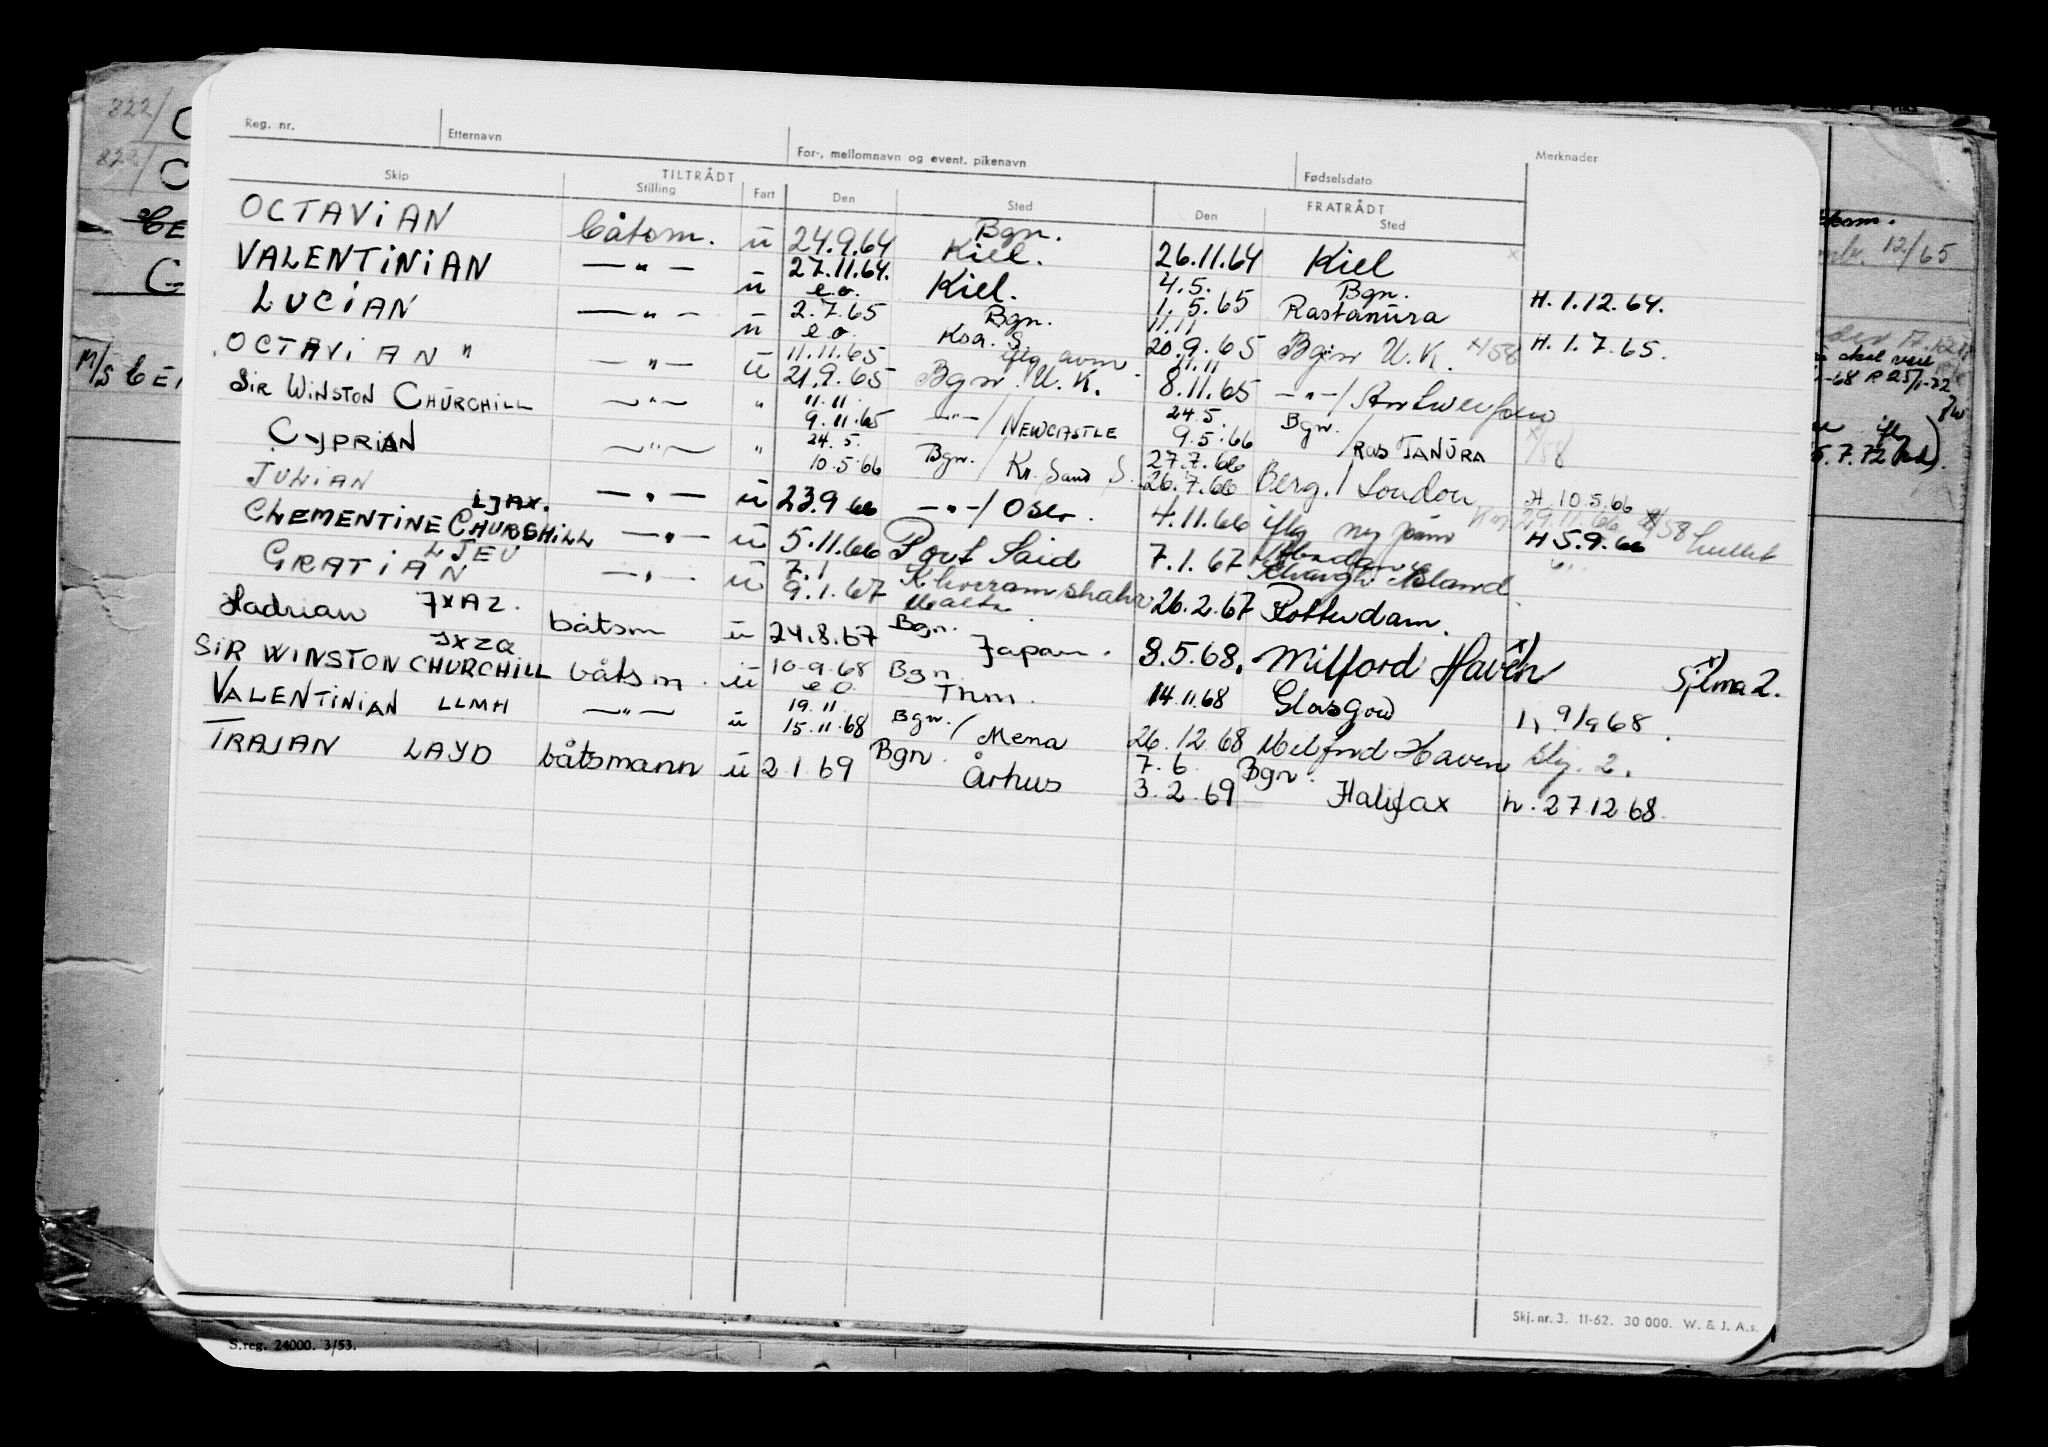 Reg. nr. Etternavn For-, mellomnavn og event. pikenavn Fødselsdato Merknader
TILTRÅDT FRATRÅDT
Skip Stilling Fart Den Sted Den Sted
OCTAVIAN båtsm. ü 24.9.64 Bgn. Kiel. 26.11.64 Kiel
VALENTINIAN —"— ü 27.11.64. e.o. Kiel. 4.5. 1.5.65 Bgn. Rastanura H. 1.12.64.
LUCIAN —"— ü 2.7.65 e.o. Bgn. Ksa. S. 11.11 20.9.65 Bgn U.K. x/58 H. 1.7.65.
OCTAVIAN " —"— ü 11.11.65 21.9.65 iflg avm. Bgn. U.K. 11.11 8.11.65 —"—/Antwerpen
SIR WINSTON CHURCHILL —"— " 11.11. 9.11.65 —"—/NEWCASTLE 24.5. 9.5.66 Bgn. / RAS TANURA x/58
CYPRIAN —"— " 24.5. 10.5.66 Bgn. / Kr. Sand S. 27.7.66 26.7.66 Berg. / London H. 10.5.66
JULIAN LJAX. —"— ü 23.9.66 —"—/ Oslo. 4.11.66 iflg ny H 5.9.66
CLEMENTINE CHURCHILL LJEU —"— ü 5.11.66 Port Said 7.1.67 Abadan Kharg Island
GRATIAN —"— ü 7.1 9.1.67 Khoramshahr Malta 26.2.67 Rotterdam.
Hadrian JXAZ. båtsm ü 24.8.67 Bgn. Japan. 8.5.68. Milford Haven x) x) Sjøma 2.
SIR WINSTON CHURCHILL JXZQ båtsm. ü 10.9.68 e.o. Bgn Thm. 14.11.68 Glasgow h 9/9 68.
VALENTINIAN LLMH —"— ü 19.11. 15.11.68 Bgn. / Mena 26.12.68 Milford Haven 2.
TRAJAN LAYD båtsmann ü 2.1.69 Bgn. Århus 7.6. 3.2.69 Bgn. Halifax h. 27.12.68.
Skj. nr. 3. 11-62. 30 000. W. & J. A.s.
S.reg. 24000. 3/53.
822/ C
822/ C
M/S
12/65